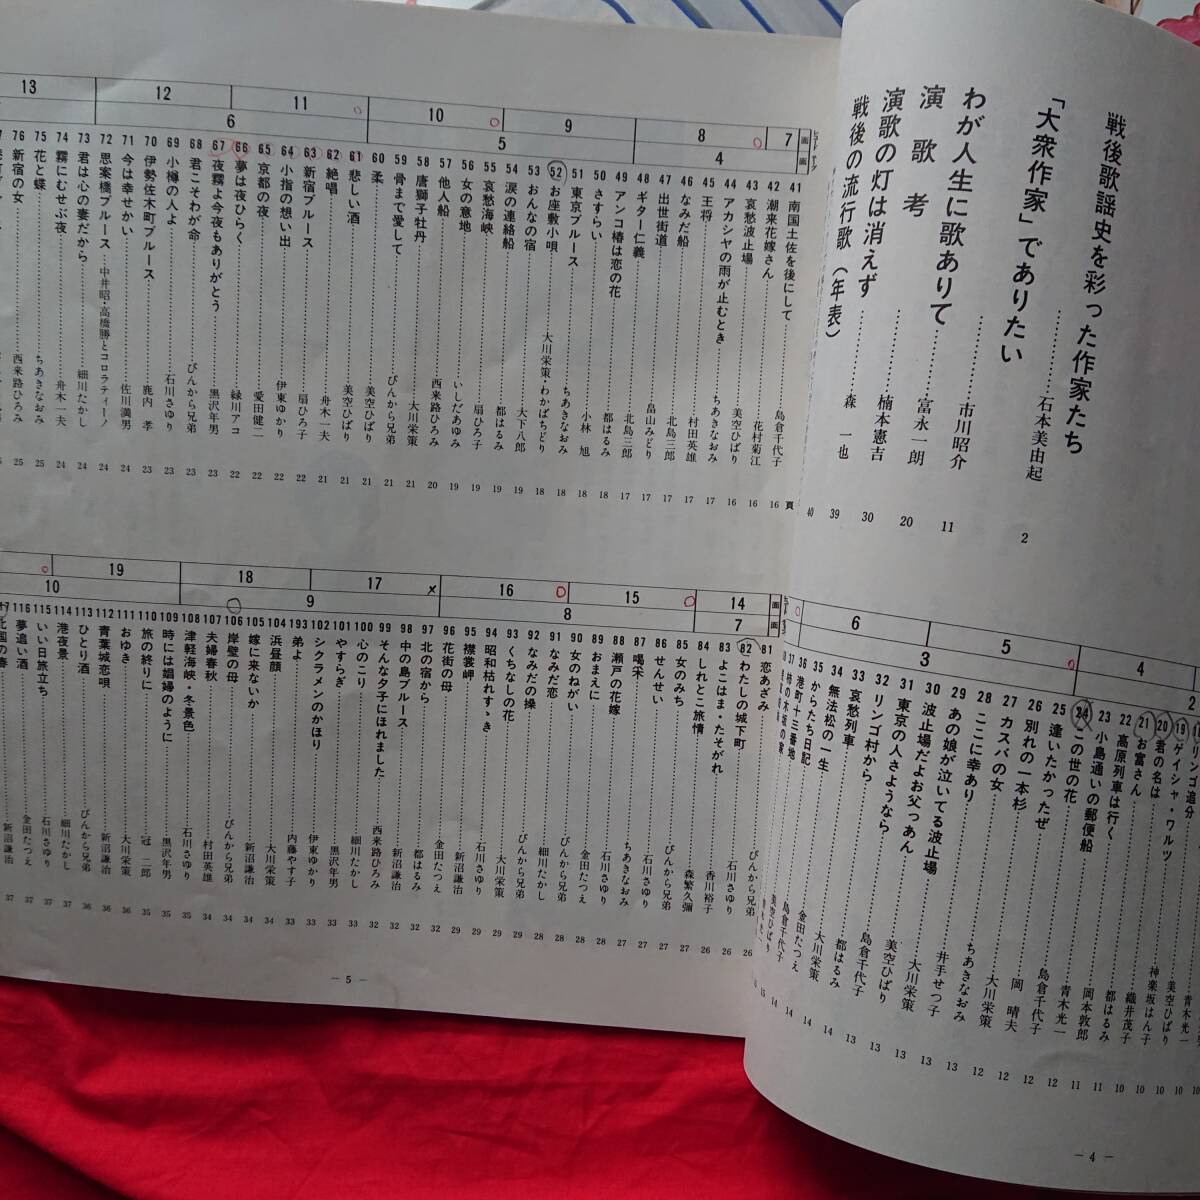 戦後歌謡史を彩った作家たち
「大衆作家」でありたい…………石本美由起 2
わが人生に歌ありて…………市川昭介 11
演歌考…………富永一朗 20
演歌の灯は消えず…………楠本憲吉 30
戦後の流行歌(年表)…………森 一也 39
40
2
4
5
6
3
19 ゲイシャ・ワルツ 神楽坂はん子 10
20 君の名は 織井茂子 10
21 お富さん
22 高原列車は行く 岡本敦郎
23 小島通いの郵便船 青木光一 11
24 この世の花 島倉千代子
25 逢いたかったぜ 岡 晴夫 12
26 別れの一本杉
27 カスバの女
28 ここに幸あり
29 あの娘が泣いてる波止場
30 波止場だよお父っあん
31 東京の人さようなら 島倉千代子 13
32 リンゴ村から
33 哀愁列車
34 無法松の一生
35 からたち日記 島倉千代子 14
36 港町十三番地 美空ひばり 14
37 柿の木坂の家
- 4 -
7
8
9
10
11
12
13
4
5
6
41 南国土佐を後にして 島倉千代子 16頁
42 潮来花嫁さん 花村菊江 16
43 哀愁波止場 美空ひばり 16
44 アカシヤの雨が止むとき ちあきなおみ 17
45 王将 村田英雄 17
46 なみだ船 北島三郎 17
47 出世街道 畠山みどり 17
48 ギター仁義 北島三郎 17
49 アンコ椿は恋の花 都はるみ 18
50 さすらい 小林 旭 18
51 東京ブルース ちあきなおみ 18
52 お座敷小唄 大川栄策・わかばちどり 18
53 おんなの宿 大下八郎 19
54 涙の連絡船 都はるみ 19
55 哀愁海峡 扇ひろ子 19
56 女の意地 いしだあゆみ 19
57 他人船 西来路ひろみ 20
58 唐獅子牡丹 大川栄策 21
59 骨まで愛して ぴんから兄弟 21
60 柔 美空ひばり 21
61 悲しい酒 美空ひばり 21
62 絶唱 舟木一夫 21
63 新宿ブルース 扇ひろ子 22
64 小指の想い出 伊東ゆかり 22
65 京都の夜 愛田健二 22
66 夢は夜ひらく 緑川アコ 22
67 夜霧よ今夜もありがとう 黒沢年男 22
68 君こそわが命 ぴんから兄弟 23
69 小樽の人よ 石川さゆり 23
70 伊勢佐木町ブルース 鹿内 孝 23
71 今は幸せかい 佐川満男 24
72 思案橋ブルース 中井昭・高橋勝とコロラティーノ 24
73 君は心の妻だから 細川たかし 24
74 霧にむせぶ夜 舟木一夫 24
75 花と蝶 ちあきなおみ 25
76 新宿の女 西来路ひろみ 25
14
15
16
17
18
19
7
8
9
10
81 恋あざみ ぴんから兄弟 26
82 わたしの城下町 石川さゆり 26
83 よこはま・たそがれ 香川裕子 26
84 しれとこ旅情 森繁久彌 27
85 女のみち ぴんから兄弟 27
86 せんせい 石川さゆり 27
87 喝采 ちあきなおみ 27
88 瀬戸の花嫁 石川さゆり 28
89 おまえに 金田たつえ 28
90 女のねがい ぴんから兄弟 28
91 なみだ恋 細川たかし 28
92 なみだの操 ぴんから兄弟 29
93 くちなしの花 大川栄策 29
94 昭和枯れすゝき 石川さゆり 29
95 襟裳岬 新沼謙治 29
96 花街の母 金田たつえ 32
97 北の宿から 都はるみ 32
98 中の島ブルース 新沼謙治 32
99 そんな夕子にほれました 西来路ひろみ 32
100 心のこり 細川たかし 33
101 やすらぎ 黒沢年男 33
102 シクラメンのかほり 伊東ゆかり 33
193 弟よ 内藤やす子 33
104 浜昼顔 大川栄策 34
105 嫁に来ないか 新沼謙治 34
106 岸壁の母 ぴんから兄弟 34
107 夫婦春秋 村田英雄 34
108 津軽海峡・冬景色 石川さゆり 35
109 時には娼婦のように 黒沢年男 35
110 旅の終りに 冠 二郎 35
111 おゆき 大川栄策 36
112 青葉城恋唄 新沼謙治 36
113 ひとり酒 ぴんから兄弟 36
114 港夜景 細川たかし 37
115 いい日旅立ち 石川さゆり 37
116 夢追い酒 金田たつえ 37
117 北国の春 新沼謙治 37
- 5 -